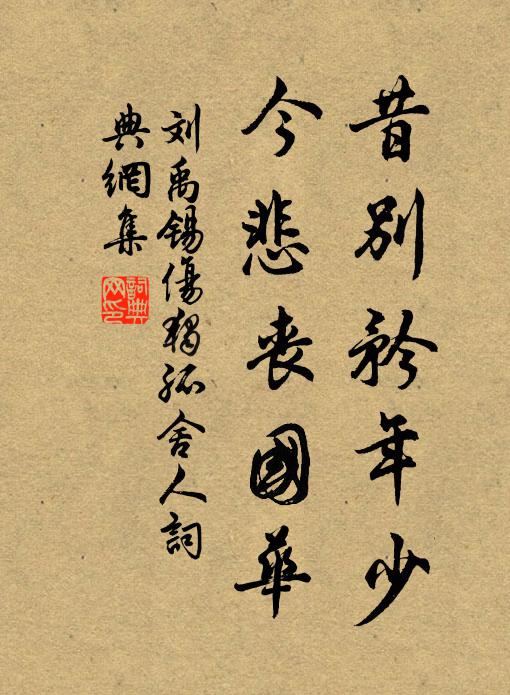 昔别矜年少
今悲丧國華
刘禹锡傷獨孤舍人詞
典網集
詞典
网印